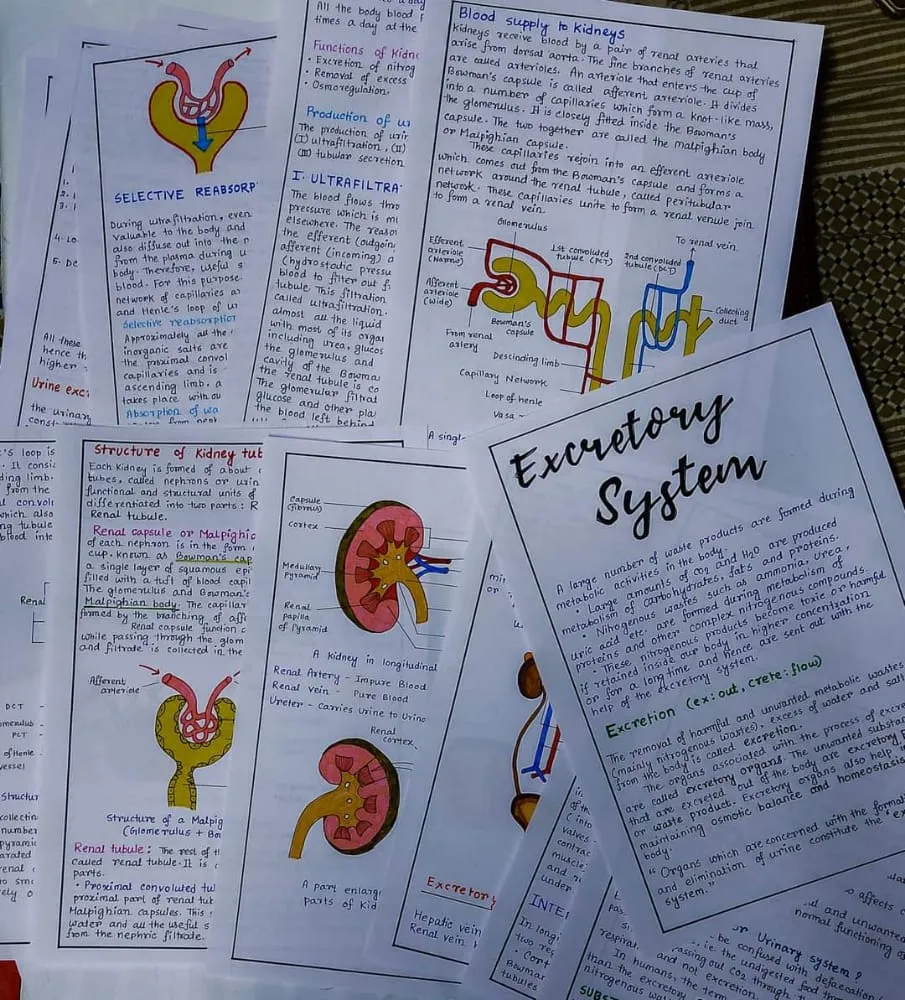 All the body blood
times a day at the
Functions of Kidn
• Excretion of nitrog
• Removal of excess
• Osmoregulation.
Production of u
The production of urin
(I) ultrafiltration, (II)
(III) tubular secretion
I. ULTRAFILTRA
The blood flows thro
pressure which is m
elsewhere. The reaso
the efferent (outgoin
afferent (incoming) a
(hydrostatic pressu
blood to filter out f
tubule. This filtration
called ultrafiltration.
almost all the liquid
with most of its orga
including urea, glucos
the glomerulus and
cavity of the Bowma
the renal tubule is ca
The glomerular filtrat
glucose and other pla
the blood left behind
Blood supply to Kidneys
Kidneys receive blood by a pair of renal arteries that
arise from dorsal aorta. The fine branches of renal arteries
are called arterioles. An arteriole that enters the cup of
Bowman's capsule is called afferent arteriole. It divides
into a number of capillaries which form a knot-like mass,
the glomerulus. It is closely fitted inside the Bowman's
capsule. The two together are called the malpighian body
or Malpighian capsule.
These capillaries rejoin into an efferent arteriole
which comes out from the Bowman's capsule and forms a
network around the renal tubule, called peritubular
network. These capillaries unite to form a renal venule join
to form a renal vein.
Glomerulus
To renal vein
Efferent
arteriole
(Narrow)
1st convoluted
tubule (PCT)
2nd convoluted
tubule (DCT)
Afferent
arteriole
(Wide)
Collecting
duct
Bowman's
capsule
From renal
artery
Descinding limb
Capillary Network
Loop of henle
Vasa
SELECTIVE REABSORP
During ultrafiltration, even
valuable to the body and
also diffuse out into the n
from the plasma during u
body. Therefore, useful s
blood. For this purpose
network of capillaries a
and Henle's loop of u
Selective reabsorption
Approximately all the
inorganic salts are
the proximal convol
capillaries and is
ascending limb. a
takes place with ou
Absorption of wa
1.
2.
3.
4. Lo
5. De
All these
hence th
higher
Urine exc
the urinary
's loop is
It consi
ding limb.
from the
l convol
which also
ng tubule
blood inte
Renal
DCT
PCT
of Henle
vessel
Structur
collectin
number
pyramid
arated
renal
to smo
rely o
Structure of Kidney tub
Each Kidney is formed of about
tubes, called nephrons or urin
functional and structural units of
differentiated into two parts: R
Renal tubule.
Renal capsule or Malpighic
of each nephron is in the form
cup. known as Bowman's cap
a single layer of squamous epi
filled with a tuft of blood capil
The glomerulus and Bowman's
Malpighian body. The capillar
formed by the branching of aff
Renal capsule function
while passing through the glom
and filtrate is collected in the
Afferent
arteriole
Structure of a Malpig
(Glomerulus + Bo
Renal tubule: The rest of t
called renal tubule. It is
parts.
• Proximal convoluted tu
proximal part of renal tub
Malpighian capsules. This
water and all the useful s
from the nephric filtrate.
A singl
Capsule
(fibrous)
Cortex
Medullary
Pyramid
Renal
papilla
of Pyramid
A kidney in longitudinal
Renal Artery - Impure Blood
Renal vein - Pure Blood
Ureter - Carries Urine to Urino
Renal
cortex
A part enlarg
parts of Kid
Excretor
Hepatic vein
Renal vein
Excretory
System
A large number of waste products are formed during
metabolic activities in the body.
• Large amounts of CO2 and H2O are produced
metabolism of carbohydrates, fats and proteins.
• Nitrogenous wastes such as ammonia, Urea,
uric acid etc. are formed during metabolism of
proteins and other complex nitrogenous compounds.
• These nitrogenous products become toxic or harmful
if retained inside our body in higher concentration
or for a long time and hence are sent out with the
help of the excretory system.
Excretion (ex: out, crete: flow)
The removal of harmful and unwanted metabolic wastes
(mainly nitrogenous wastes), excess of water and salt
from the body is called excretion.
The organs associated with the process of excre
are called excretory organs. The unwanted substan
that are excreted out of the body are excretory p
or waste product. Excretory organs also help
maintaining osmotic balance and homeostasis
body.
"Organs which are concerned with the format
and elimination of urine constitute the "ex
system."
valves
contrac
muscle
under
INTE
In long
two reg
• Cort
Bowman
tubules
or Urinary system?
be confused with defaecation
i.e. the undigested food th
passing out CO2 through
respirat and not excretion
In humans, the term
than the excretory
nitrogenous wa
SUBST
affects
and unwanted
normal functioning of